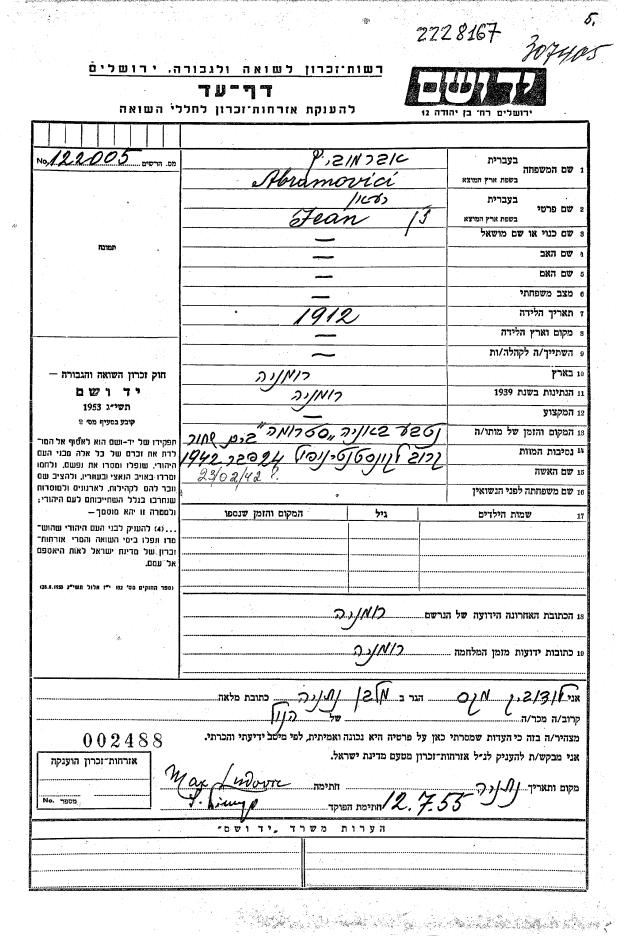 5.
2228167
307405
רשות-זכרון לשואה ולגבורה, ירושלים
דף-עד
להענקת אזרחות-זכרון לחללי השואה
יד ושם
ירושלים רח' בן יהודה 12
No. 122005 מס. הרשים
תמונה
חוק זכרון השואה והגבורה —
יד ושם
תשי"ג 1953
קובע בסעיף מס' 2
תפקידו של יד-ושם הוא לאסוף אל המו־
לדת את זכרם של כל אלה מבני העם
היהודי, שנפלו ומסרו את נפשם, נלחמו
ומרדו באויב הנאצי ובעוזריו, ולהציב שם
וזכר להם, לקהילות, לארגונים ולמוסדות
שנחרבו בגלל השתייכותם לעם היהודי;
ולמטרה זו יהא מוסמך—
...(4) להעניק לבני העם היהודי שהוש־
מדו ונפלו בימי השואה והמרי אזרחות־
זכרון של מדינת ישראל לאות היאספם
אל עמם.
ספר החוקים מס' 132 י"ז אלול תשי"ג 28.8.1953
1 שם המשפחה בעברית אברמוביץ
בשפת ארץ המוצא Abramovici
2 שם פרטי בעברית
בשפת ארץ המוצא ז'ן Jean
3 שם כנוי או שם מושאל —
4 שם האב —
5 שם האם —
6 מצב משפחתי —
7 תאריך הלידה 1912
8 מקום וארץ הלידה —
9 השתייך/ה לקהלה/ות —
10 בארץ רומניה
11 הנתינות בשנת 1939 רומניה
12 המקצוע —
13 המקום והזמן של מותו/ה נטבע באוניה "סטרומה" בים שחור
14 נסיבות המוות קרוב לקונסטנטינופול 24 פבר 1942
15 שם האשה 23/02/42 ?
16 שם משפחתה לפני הנשואין
17 שמות הילדים גיל המקום והזמן שנספו
18 הכתובת האחרונה הידועה של הנרשם רומניה
19 כתובות ידועות מזמן המלחמה רומניה
אני לודוביק מקס הגר ב מלבן נתניה כתובת מלאה
קרוב/ה מכר/ה של הנ"ל
מצהיר/ה בזה כי העדות שמסרתי כאן על פרטיה היא נכונה ואמיתית, לפי מיטב ידיעתי והכרתי.
אני מבקש/ת להעניק לנ"ל אזרחות-זכרון מטעם מדינת ישראל.
002488
אזרחות-זכרון הוענקה
מספר No.
מקום ותאריך נתניה חתימה Max Ludovic
12.7.55 חתימת הפוקד
הערות משרד "יד ושם"